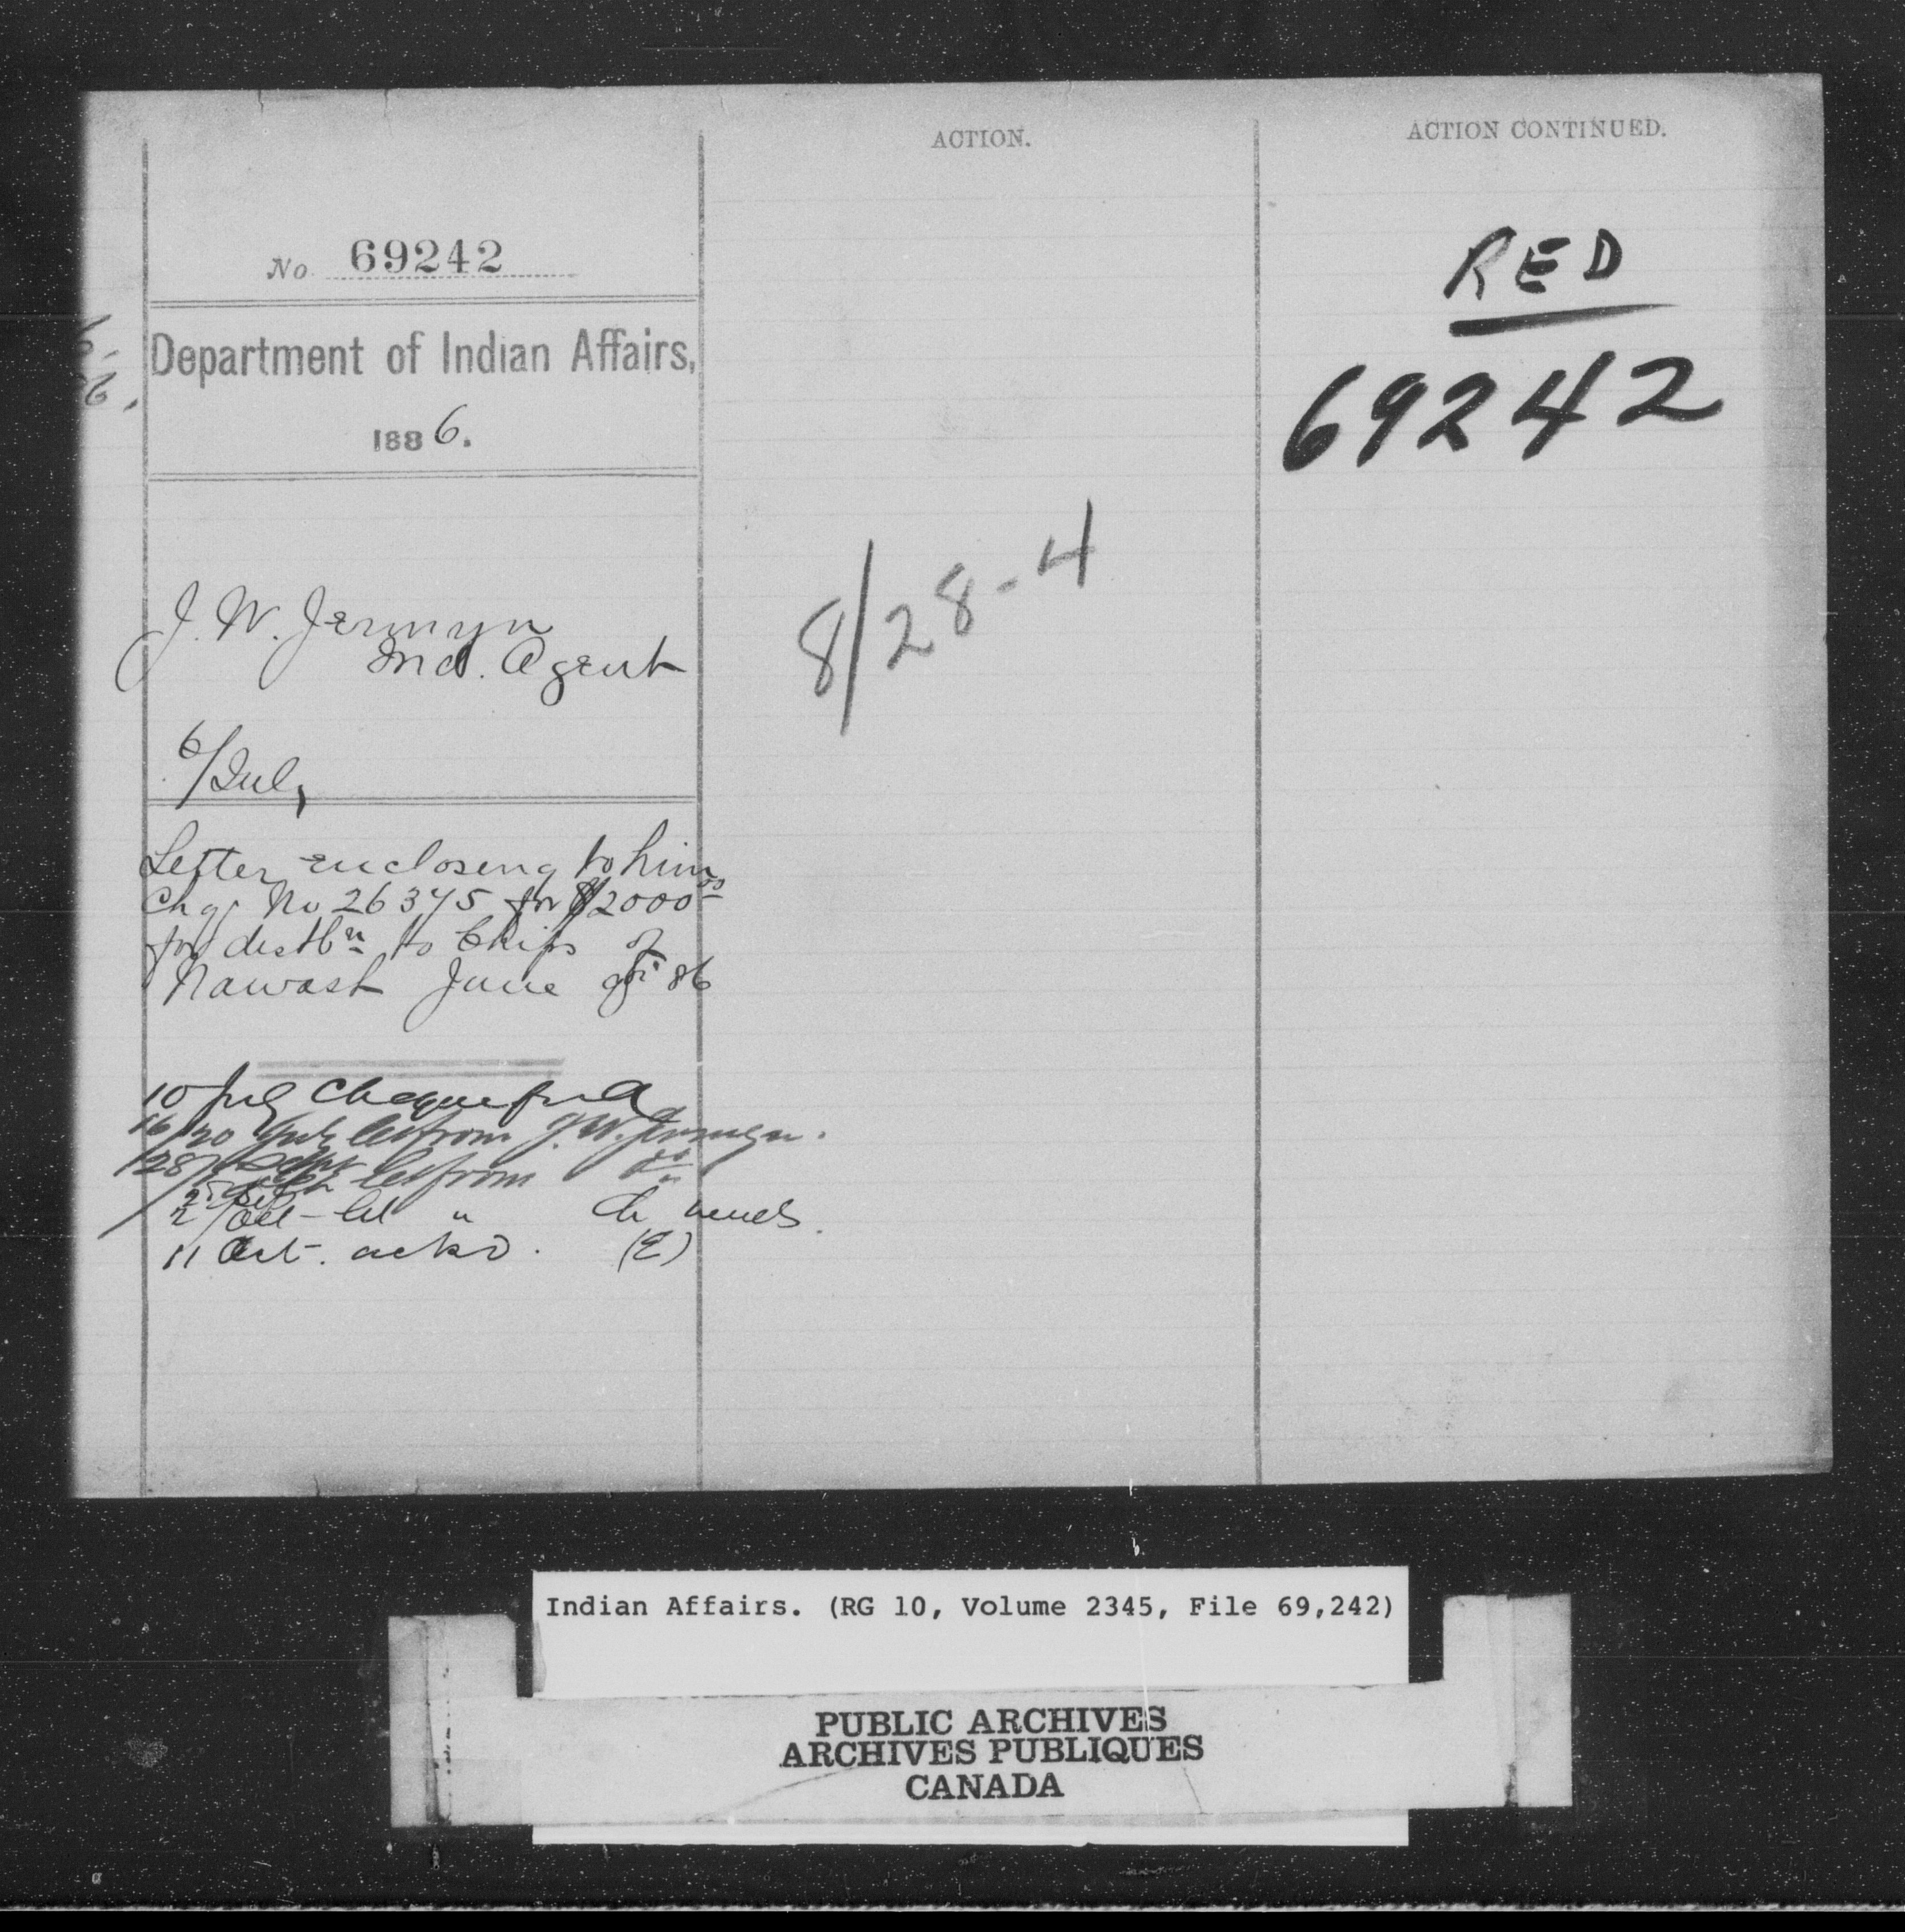 No 69242
Department of Indian Affairs,
1886.
J. W. Jermyn
Ind. Agent
6/July
Letter enclosing to him
Chq. No 26375 for $2000.00
for distbn to Chips of
Nawash June 86
10 July Cheque fwd
16/20 July let from J. W. Jermyn.
28/ Sept let from do
2/Oct - let "
11 Oct. ackd. (E)
ACTION.
8/28-4
ACTION CONTINUED.
RED
69242
Indian Affairs. (RG 10, Volume 2345, File 69,242)
PUBLIC ARCHIVES
ARCHIVES PUBLIQUES
CANADA